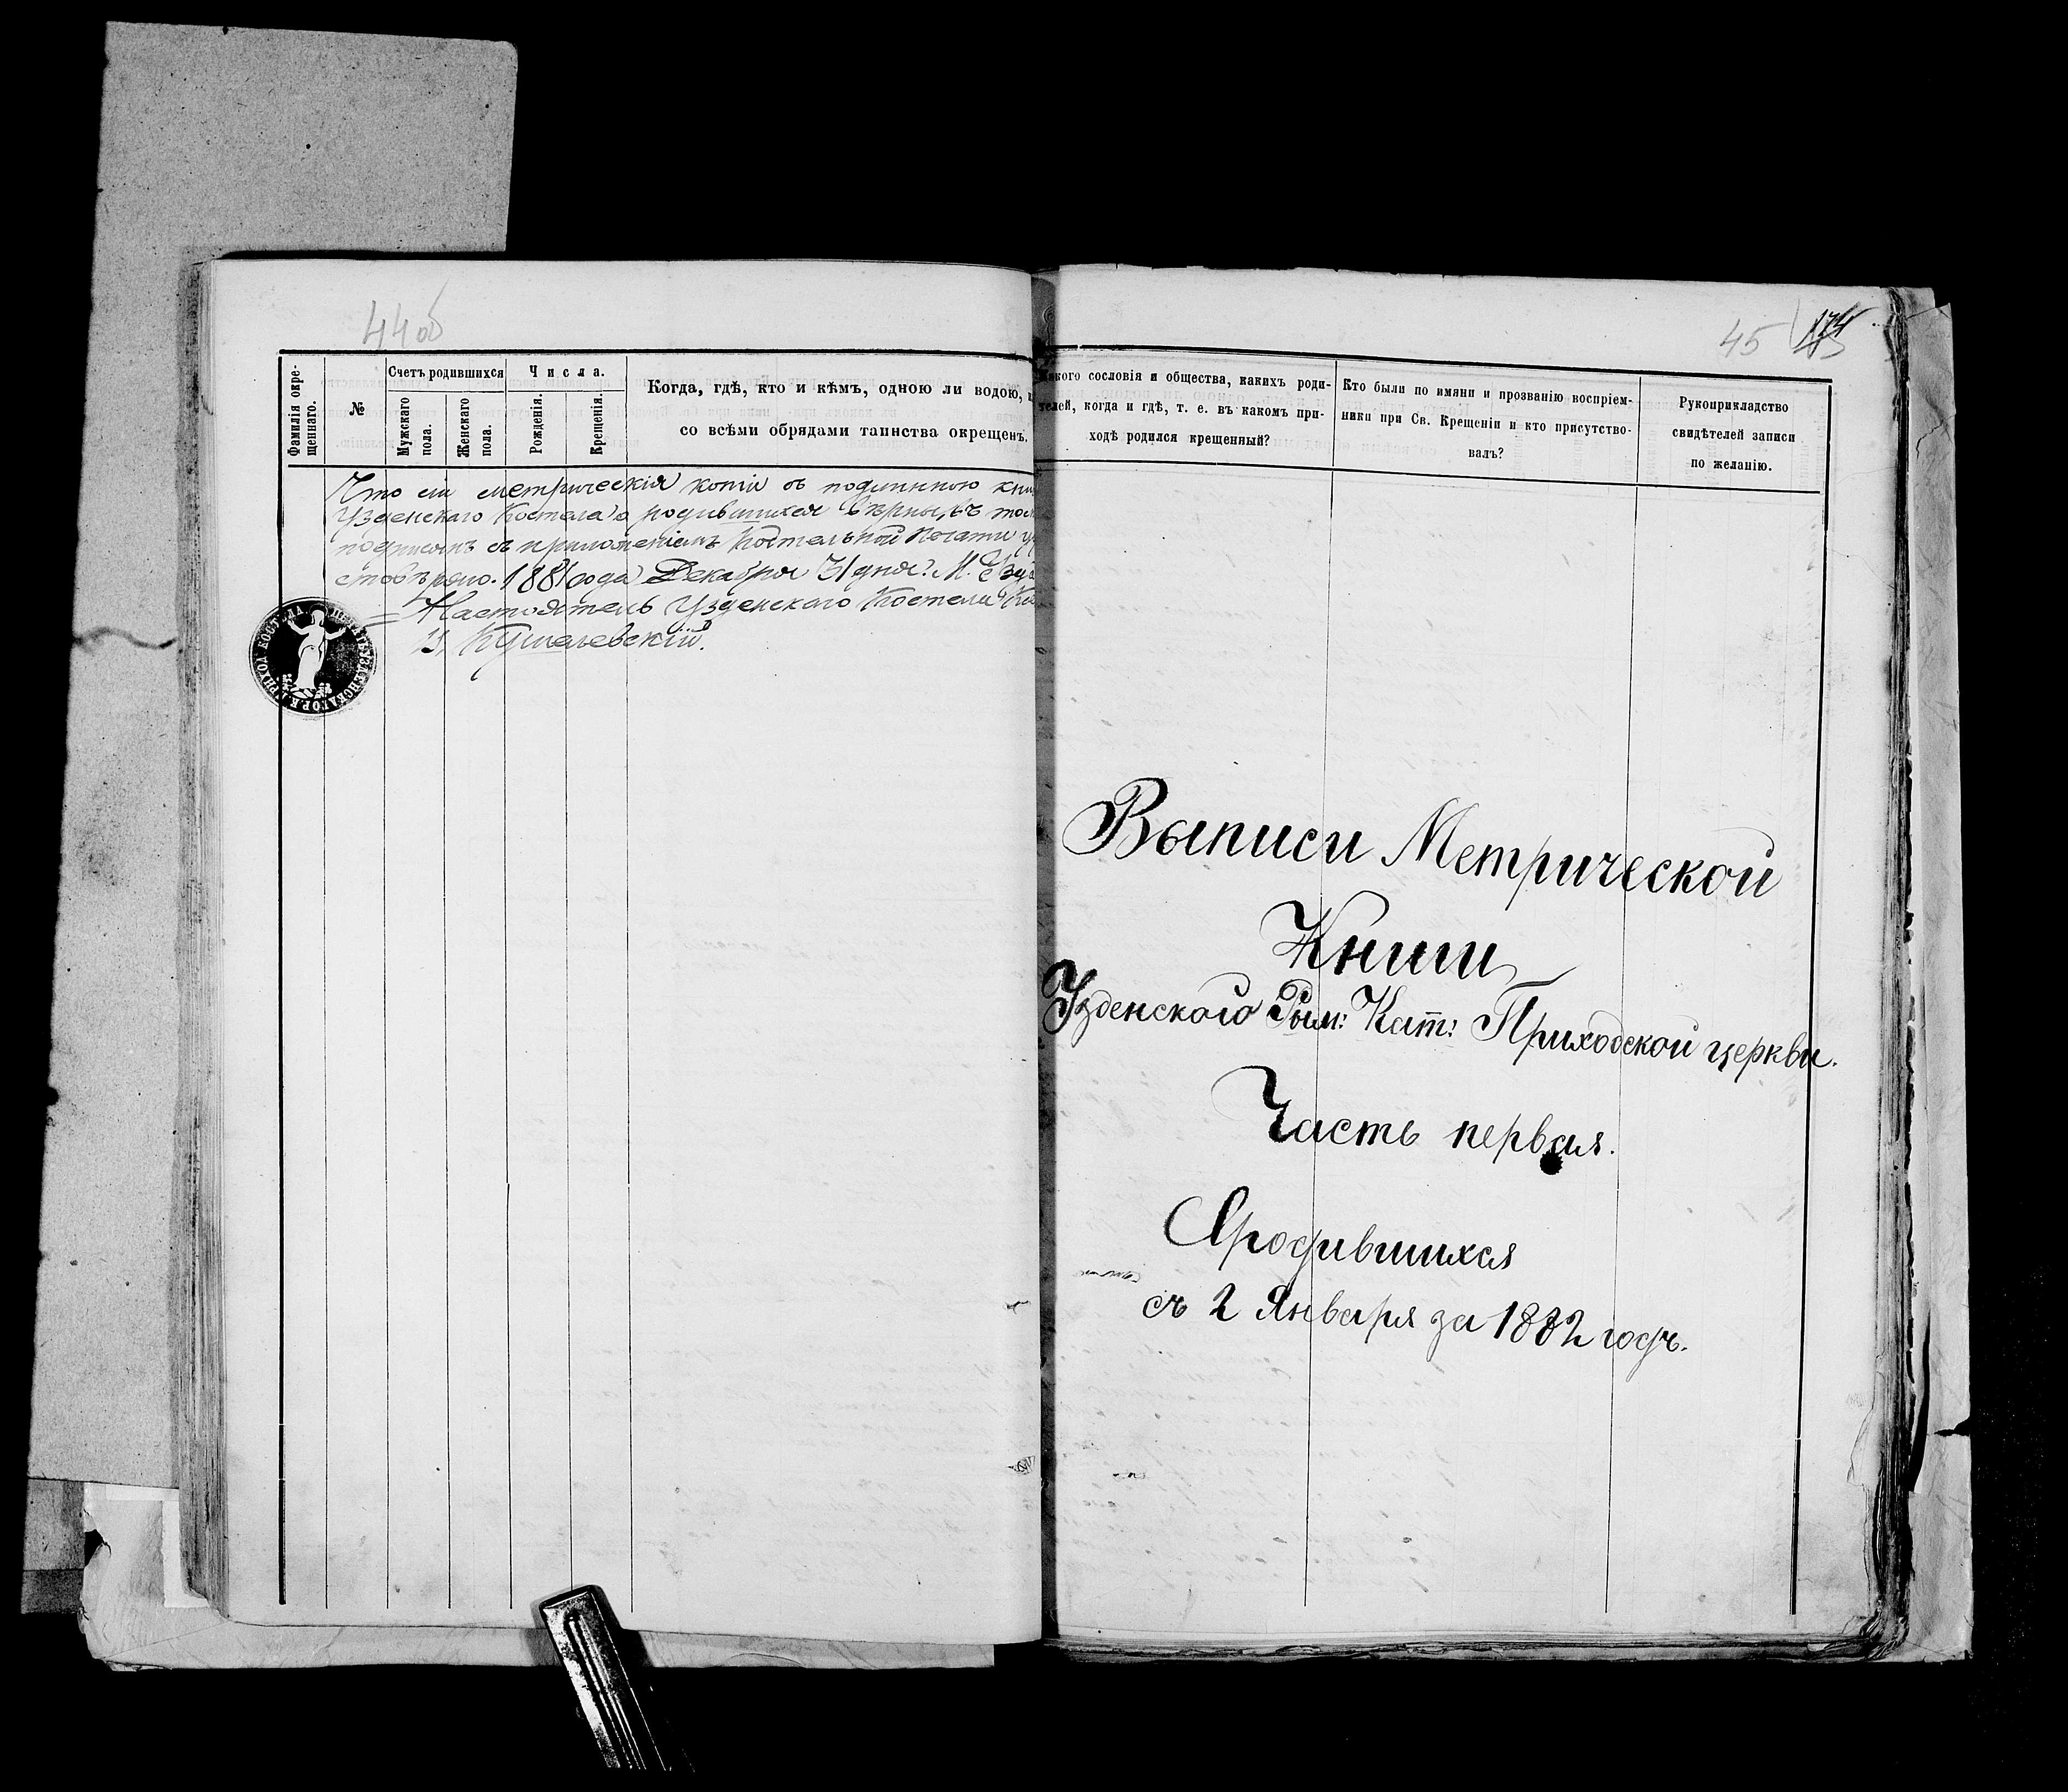 44об
Фамилія окре-
щеннаго.
№
Счетъ родившихся
Мужскаго
пола.
Женскаго
пола.
Числа.
Рожденія.
Крещенія.
Когда, гдѣ, кто и кѣмъ, одною ли водою, и
со всѣми обрядами таинства окрещенъ.
Что сіи метрическія копіи съ подлинною кни
Узденскаго Костела о родившихся вѣрны, въ том
подписомъ съ приложеніемъ Костельной Печати у
стовѣряю. 1881 года Декабря 31 дня. М. Узд
Настоятель Узденскаго Костела Кс
И. Кушелевскій.
45 174
какого сословія и общества, какихъ роди-
телей, когда и гдѣ, т. е. въ какомъ при-
ходѣ родился крещенный?
Кто были по имяни и прозванію воспріем-
ники при Св. Крещеніи и кто присутство-
валъ?
Рукоприкладство
свидѣтелей записи
по желанію.
Выписи Метрической
Книги
Узденского Рым: Кат: Приходской церкви.
Часть первая.
О родившихся
съ 2 Января за 1882 годъ.